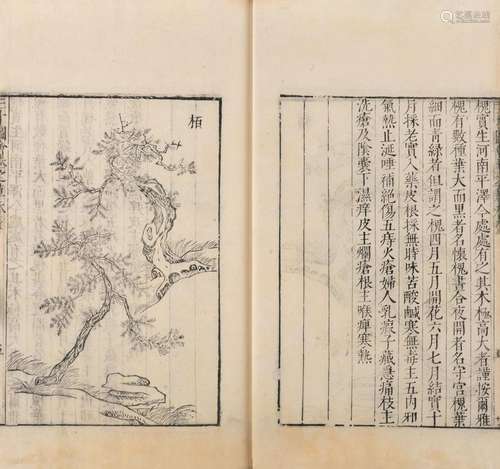 槐實生河南平澤今處處有之其木極高大者謹按爾雅
槐有數種葉大而黑者名懷槐晝合夜開者名守宮槐葉
細而青綠者但謂之槐四月五月開花六月七月結實十
月採老實入藥皮根採無時味苦酸鹹寒無毒主五內邪
氣熱止涎唾補絕傷五痔火瘡婦人乳瘕子藏急痛枝主
洗瘡及陰囊下濕痒皮主爛瘡根主喉痺寒熱
栢